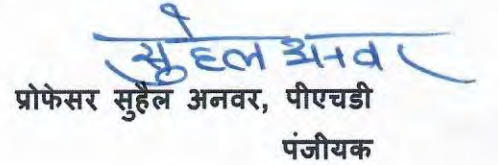 सुहेल अनवर
प्रोफेसर सुहैल अनवर, पीएचडी
पंजीयक